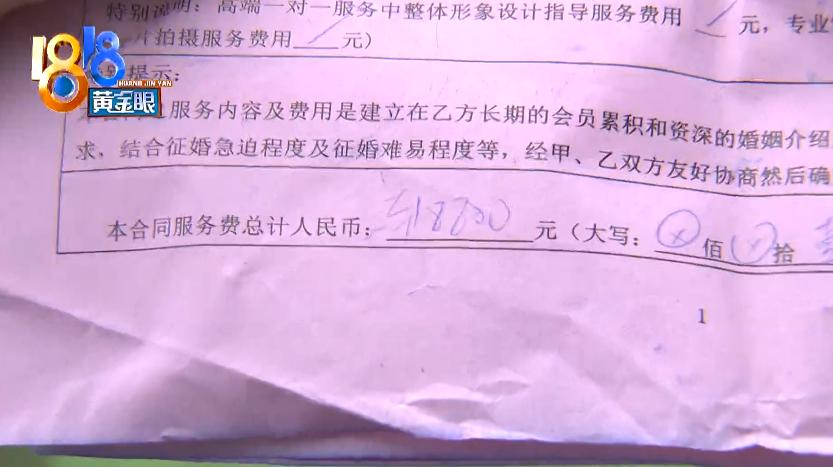 特别说明：高端一对一服务中整体形象设计指导服务费用 / 元，专业
片拍摄服务费用 / 元）
1818
HUANG JIN YAN
黄金眼
提示：
服务内容及费用是建立在乙方长期的会员累积和资深的婚姻介绍
求、结合征婚急迫程度及征婚难易程度等，经甲、乙双方友好协商然后确
本合同服务费总计人民币：¥18800 元（大写：ⓧ佰ⓧ拾
1